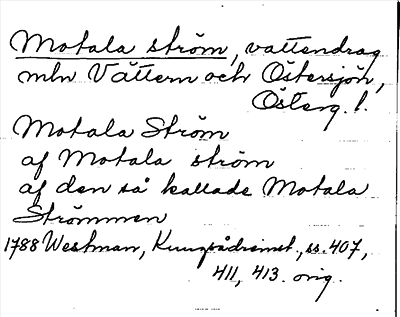 Motala ström, vattendrag
mln Vättern och Östersjön,
Österg. l.
Motala Ström
af Motala ström
af den så kallade Motala
Strömmen
1788 Westman, ss. 407,
411, 413. orig.